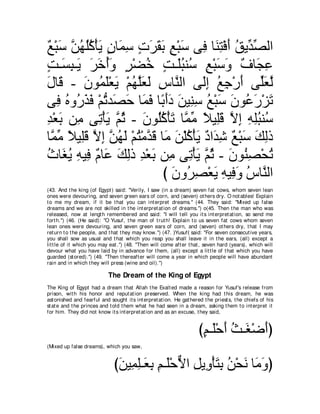 الصِّدِّيقُ أَفْتِنَا فِى سَبْعِ بَقَرَٰتٍ سِمَانٍ يَأْكُلُهُنَّ سَبْعٌ
عِجَافٌ وَسَبْعِ سُنۢبُلَـٰتٍ خُضْرٍ وَأُخَرَ يَـٰبِسَـٰتٍ
لَّعَلِّى أَرْجِعُ إِلَى النَّاسِ لَعَلَّهُمْ يَعْلَمُونَ - قَالَ
تَزْرَعُونَ سَبْعُ سِنِينَ دَأَبًا فَمَا حَصَدتُّمْ فَذَرُوهُ فِى
سُنبُلِهِ إِلاَّ قَلِيلاً مِّمَّا تَأْكُلُونَ - ثُمَّ يَأْتِى مِن بَعْدِ
ذَلِكَ سَبْعٌ شِدَادٌ يَأْكُلْنَ مَا قَدَّمْتُمْ لَهُنَّ إِلاَّ قَلِيلاً مِّمَّا
تُحْصِنُونَ - ثُمَّ يَأْتِى مِن بَعْدِ ذَلِكَ عَامٌ فِيهِ يُغَاثُ
النَّاسُ وَفِيهِ يَعْصِرُونَ )
(43. And the king (of Egypt) said: "Verily, I saw (in a dream) seven fat cows, whom seven lean
ones were devouring, and seven green ears of corn, and (seven) others dry. O notables! Explain
to me my dream, if it be that you can interpret dreams.") (44. They said: "Mixed up false
dreams and we are not skilled in the interpretation of dreams.") o(45. Then the man who was
released, now at length remembered and said: "I will tell you its interpretation, so send me
forth.") (46. (He said): "O Yusuf, the man of truth! Explain to us seven fat cows whom seven
lean ones were devouring, and seven green ears of corn, and (seven) others dry, that I may
return to the people, and that they may know.") (47. (Yusuf) said: "For seven consecutive years,
you shall sow as usual and that which you reap you shall leave it in the ears, (all) except a
little of it which you may eat.") (48. "Then will come after that, seven hard (years), which will
devour what you have laid by in advance for them, (all) except a little of that which you have
guarded (stored).") (49. "Then thereafter will come a year in which people will have abundant
rain and in which they will press (wine and oil).")
The Dream of the King of Egypt
The King of Egypt had a dream that Allah the Exalted made a reason for Yusuf's release from
prison, with his honor and reputation preserved. When the king had this dream, he was
astonished and fearful and sought its interpretation. He gathered the priests, the chiefs of his
state and the princes and told them what he had seen in a dream, asking them to interpret it
for him. They did not know its interpretation and as an excuse, they said,
(أَضْغَـثُ أَحْلَـمٍ)
(Mixed up false dreams), which you saw,
(وَمَا نَحْنُ بِتَأْوِيلِ الأٌّحْلَـمِ بِعَـلِمِينَ)